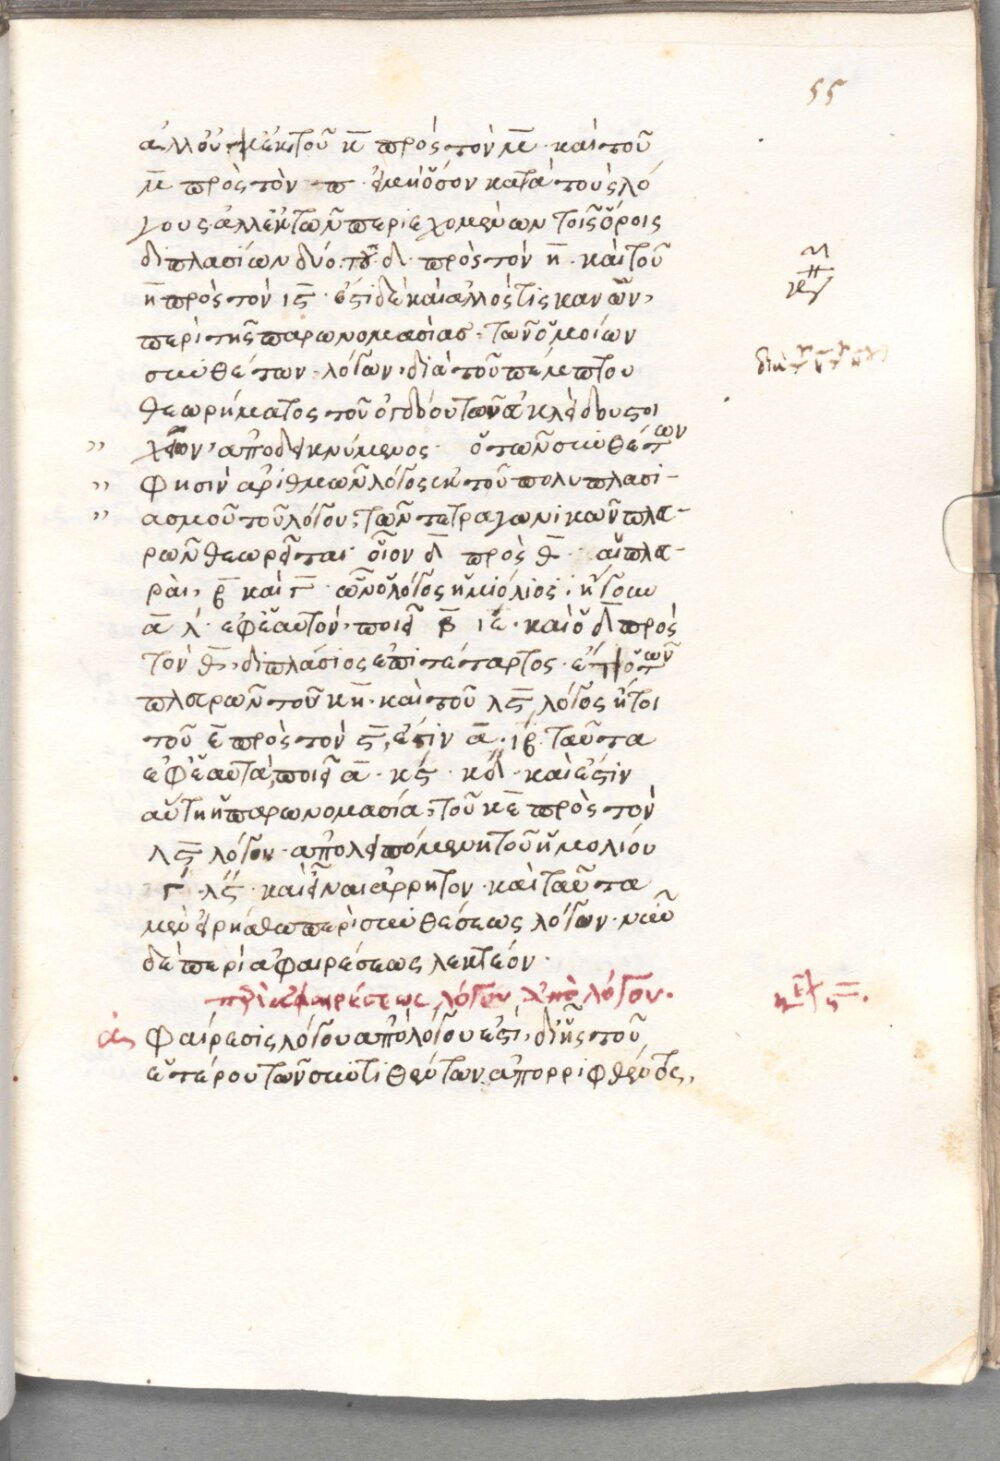 55
ἀλλ' οὐκ ἐκ τοῦ κ̅ πρὸς τὸν μ̅ · καὶ τοῦ
μ̅ πρὸς τὸν π · εἰ μὴ ὅσον κατὰ τοὺς λό
γους ἀλλ' ἐκ τῶν περιεχομένων τοῖς ὅροις
διπλασίων δύο · τοῦ δ̅ · πρὸς τὸν η̅ · καὶ τοῦ
η̅ πρὸς τὸν ις̅ · ἐστὶ δὲ καὶ ἄλλός τις κανὼν,
περὶ τῆς παρωνομασίας · τῶν ὁμοίων
συνθέτων · λόγων, διὰ τοῦ πέμπτου
θεωρήματος τοῦ ὀγδόου τῶν εὐκλείδου στοι
χείων, ἀποδεικνύμενος · ὁ τῶν συνθέτων
φησὶν ἀριθμῶν λόγος ἐκ τοῦ πολυπλασι-
ασμοῦ τοῦ λόγου, τῶν τετραγωνικῶν πλευ-
ρῶν θεωρεῖται · οἷον δ̅ πρὸς θ̅ · αἱ πλευ-
ραὶ, β̅ καὶ γ̅ · ὧν ὁ λόγος ἡμιόλιος · ἤγουν
α̅ λ · ἐφ' ἑαυτόν, ποιεῖ β̅ ιε · καὶ ὁ δ̅ πρὸς
τὸν θ̅, διπλάσιος ἐπιτέταρτος · ἔτι ὁ τῶν
πλευρῶν τοῦ κη̅ · καὶ τοῦ λς̅ λόγος ἤτοι
τοῦ ε̅ πρὸς τὸν ς̅, ἐστὶν α̅ · ιβ · ταῦτα
ἐφ' ἑαυτὰ, ποιεῖ α̅ · κς · κδ · καὶ ἐστὶν
αὕτη ἡ παρωνομασία, τοῦ κε̅ πρὸς τὸν
λς̅ λόγου · ἀπολειπόμενη τοῦ ἡμιολίου
γ · λς · καὶ εἶναι ἄρρητον · καὶ ταῦτα
μὲν εἰρήσθω περὶ συνθέσεως λόγων · νῦν
δὲ περὶ ἀφαιρέσεως λεκτέον ·
περὶ ἀφαιρέσεως λόγου ἀπὸ λόγου ·
ἀφαίρεσις λόγου ἀπὸ λόγου ἐστὶ, δι' ἧς τοῦ
ἑτέρου τῶν συντιθέντων ἀπορριφθέντος,